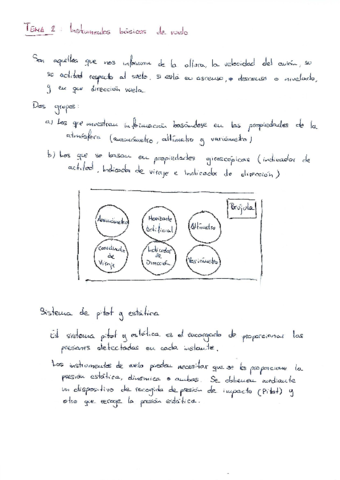 Tema 2: Instrumentos básicos de vuelo
Son aquellos que nos informan de la altura, la velocidad del avión, su
actitud respecto al suelo, si está en ascenso, o descenso o nivelado,
y en que dirección vuela.
Dos grupos:
a) Los que muestran información basándose en las propiedades de la
atmósfera (anemómetro, altímetro y variómetro)
b) Los que se basan en propiedades giroscópicas (indicador de
actitud, Indicador de viraje e Indicador de dirección)
Brújula
Anemómetro
Horizonte
Artificial
Altímetro
Coordinador
de
Viraje
Indicador
de
Dirección
Variómetro
Sistema de pitot y estática
El sistema pitot y estática es el encargado de proporcionar las
presiones detectadas en cada instante.
Los instrumentos de vuelo pueden necesitar que se les proporcione la
presión estática, dinámica o ambas. Se obtienen mediante
un dispositivo de recogida de presión de impacto (Pitot) y
otro que recoge la presión estática.